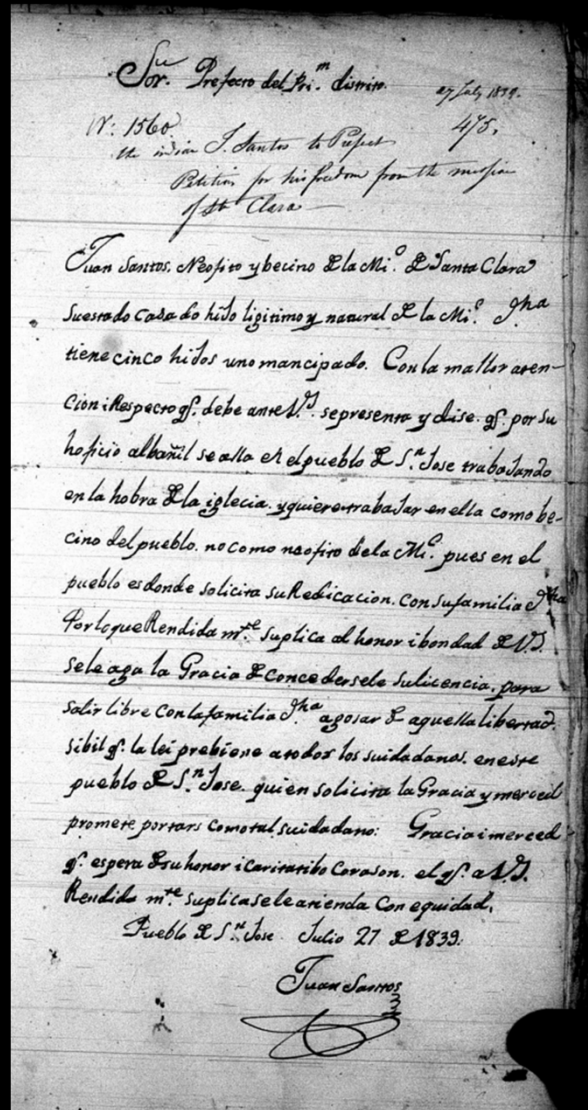 Sor. Prefecto del Pri.m distrito.
27 July 1839.
Nº: 1560
475.
the indian J. Santos to Prefect
Petition for his freedom from the mission
of Sta Clara
Juan Santos. Neofito y becino de la Mi.o de Santa Clara
su estado casado hiJo ligitimo y natural de la Mi.o dha
tiene cinco hiJos uno mancipado. Con la mallor aten-
cion i Respecto q.e debe ante V.S. se presenta y dise. q.e por su
hoficio albañil se alla en el pueblo de S.n Jose trabaJando
en la hobra de la iglecia. y quiere trabaJar en ella como be-
cino del pueblo. no como neofito de la Mi.o pues en el
pueblo es donde solicita su Redicacion. con su familia dha
Por lo que Rendida m.te suplica al honor i bondad de V.S.
se le aga la Gracia de concedersele su licencia. para
salir libre con la familia d.ha a gosar de aquella libertad
sibil q.e la lei prebiene a todos los suidadanos. en este
pueblo de S.n Jose. quien solicita la Gracia y merced
promete portars como tal suidadano: Gracia i merced
q.e espera de su honor i caritatibo Corason. el q.e a V.S.
Rendida m.te suplica se le atienda Con equidad.
Pueblo de S.n Jose Julio 27 de 1839.
Juan Santos